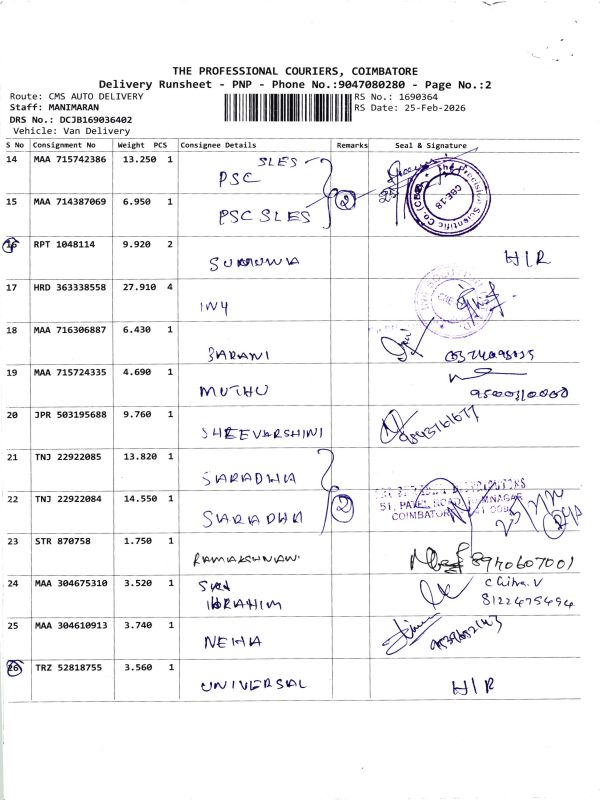 THE PROFESSIONAL COURIERS, COIMBATORE
Delivery Runsheet - PNP - Phone No.:9047080280 - Page No.:2
Route: CMS AUTO DELIVERY
Staff: MANIMARAN
DRS No.: DCJB169036402
Vehicle: Van Delivery
RS No.: 1690364
RS Date: 25-Feb-2026
S No Consignment No Weight PCS Consignee Details Remarks Seal & Signature
14 MAA 715742386 13.250 1 SLES
PSC
15 MAA 714387069 6.950 1
PSC SLES
2
The Precision Scientific Co. (CBE)
CBE-18
16 RPT 1048114 9.920 2
H/R
17 HRD 363338558 27.910 4
INY
18 MAA 716306887 6.430 1
BARANI
19 MAA 715724335 4.690 1
MUTHU
20 JPR 503195688 9.760 1
SHEEVARSHINI
21 TNJ 22922085 13.820 1
SARADHA
22 TNJ 22922084 14.550 1
SARADHA
2
51, PATEL ROAD,
COIMBATORE
23 STR 870758 1.750 1
8940607001
24 MAA 304675310 3.520 1
IBRAHIM
Chitra.V
8122475494
25 MAA 304610913 3.740 1
NEHA
26 TRZ 52818755 3.560 1
UNIVERSAL
H/R